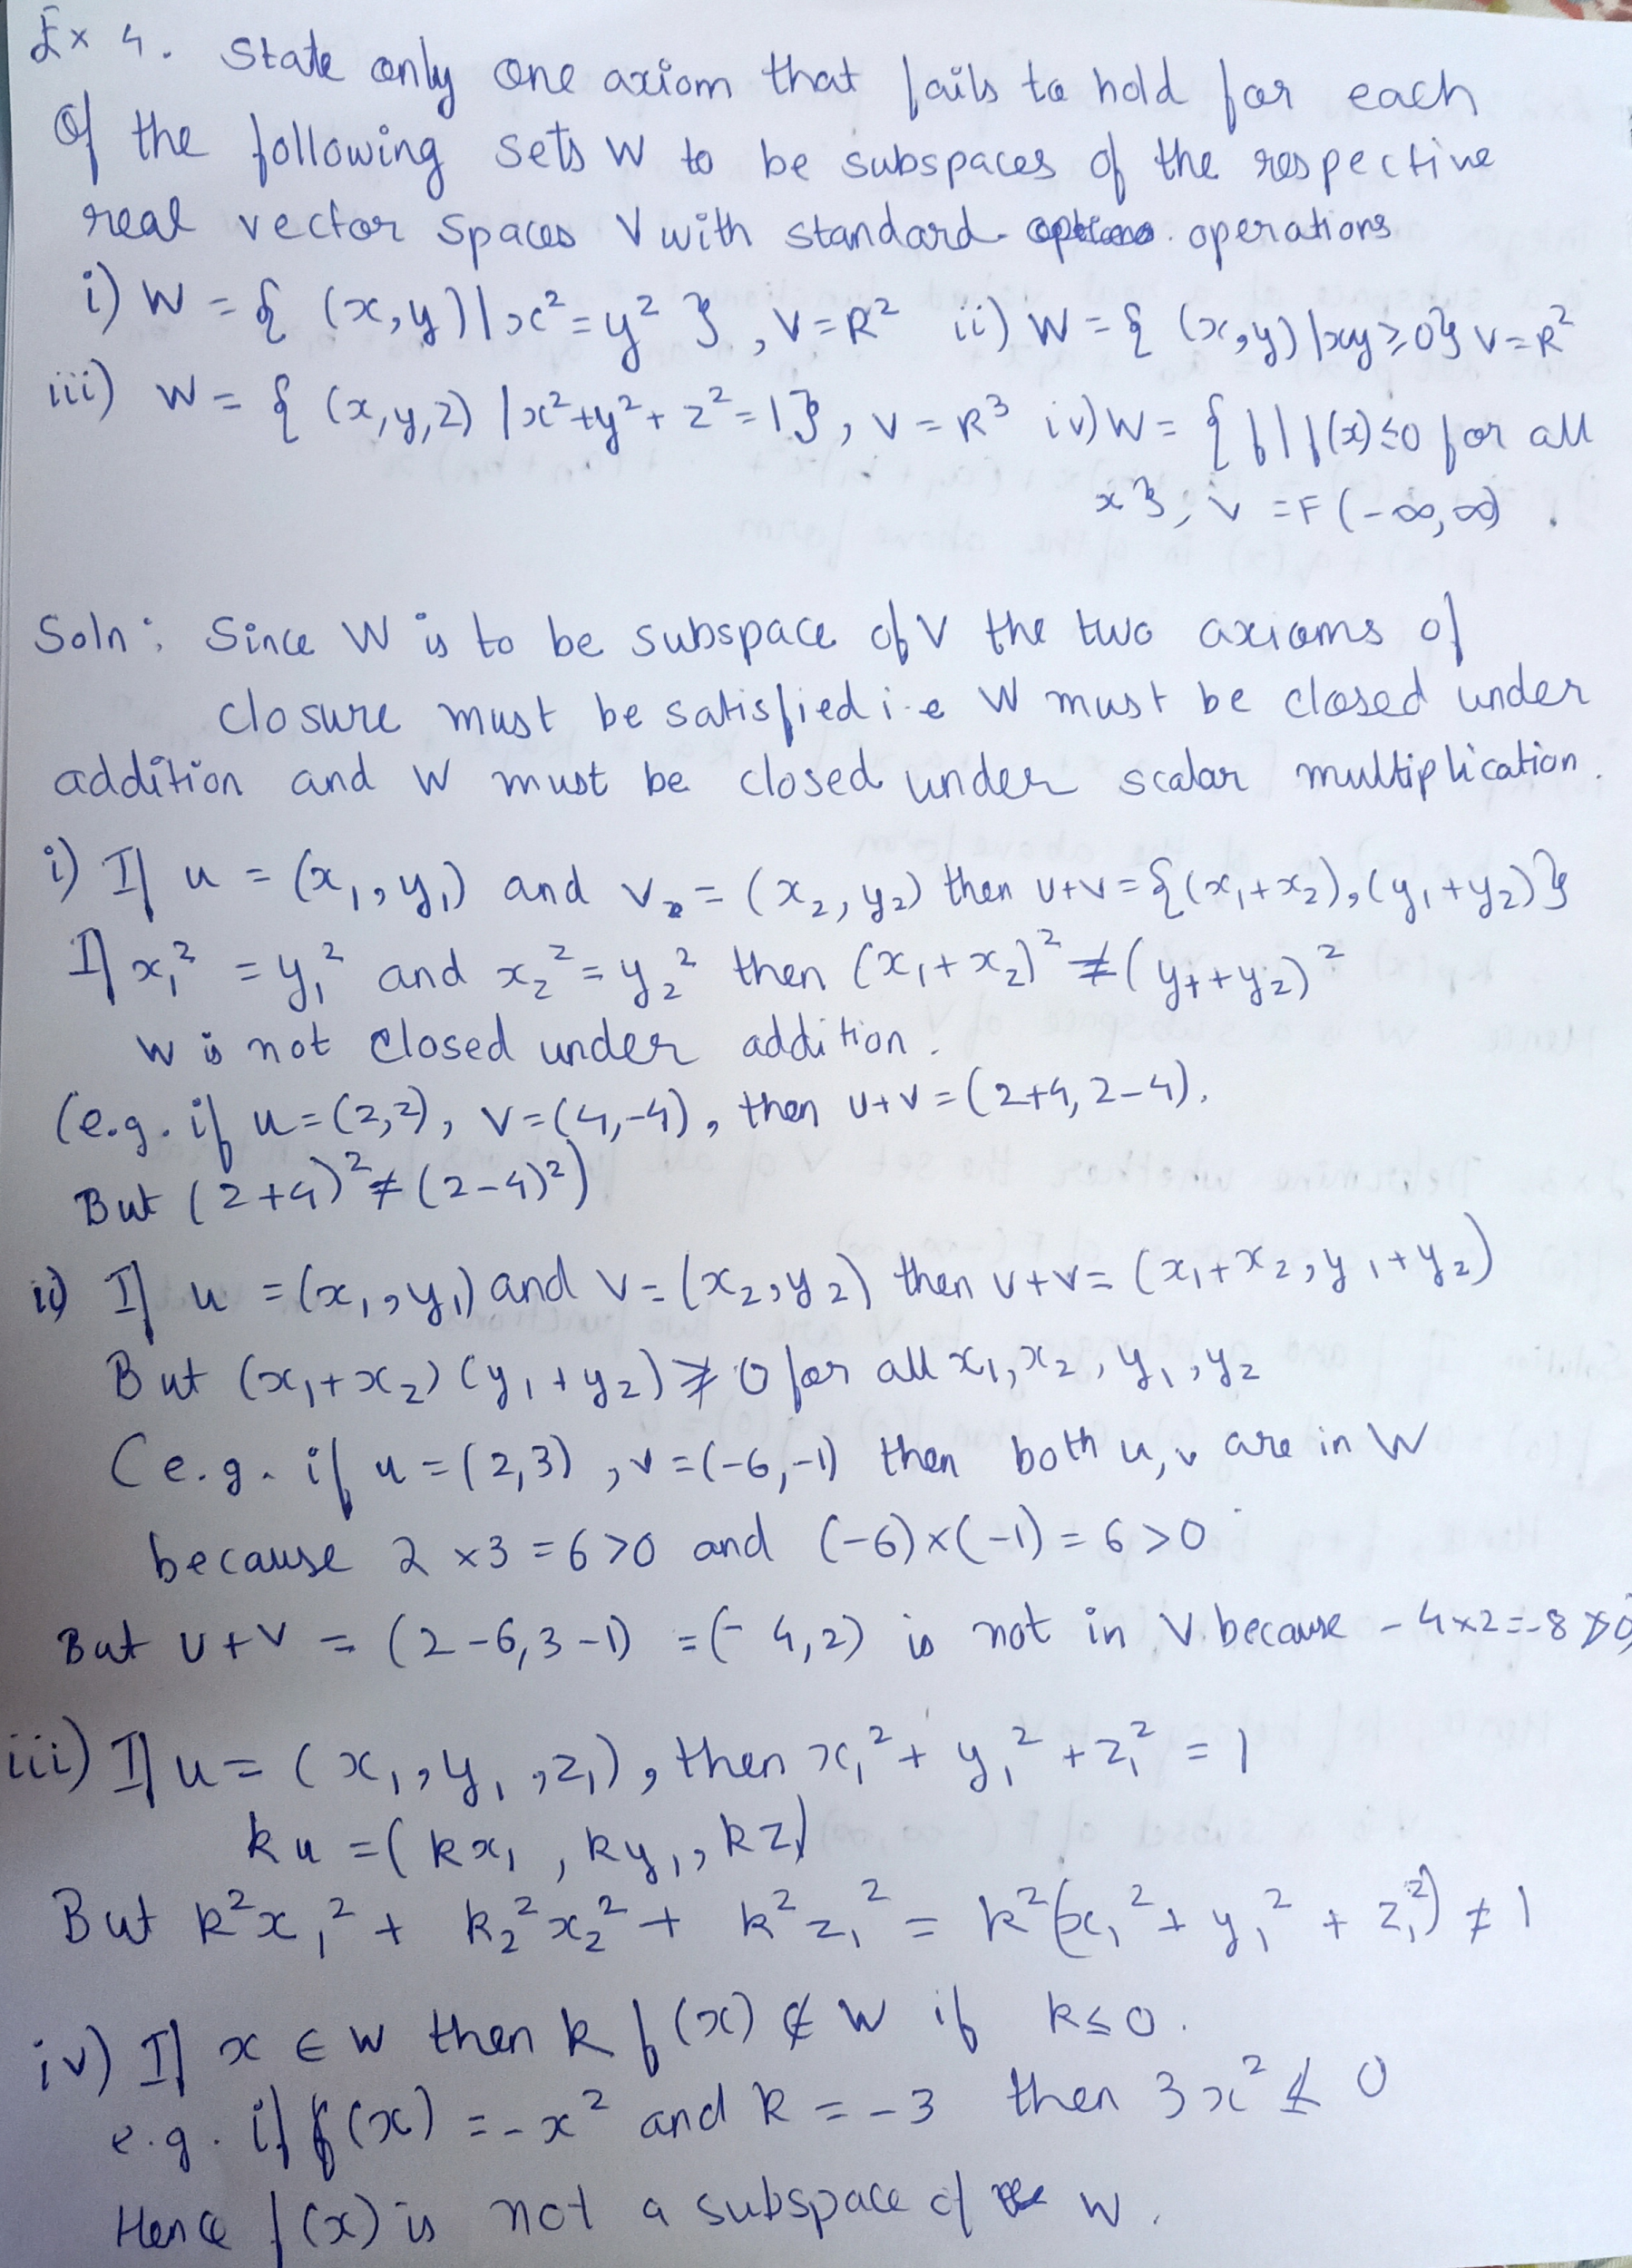 Ex 4. State only one axiom that fails to hold for each
of the following sets W to be subspaces of the respective
real vector spaces V with standard operations
i) W = { (x,y) | x² = y² }, V = R² ii) W = { (x,y) | xy ≥ 0} V = R²
iii) W = { (x,y,z) | x²+y²+z² = 1}, V = R³ iv) W = { f | f(x) ≤ 0 for all
x }, V = F (-∞,∞).
Soln: Since W is to be subspace of V the two axioms of
closure must be satisfied i.e W must be closed under
addition and W must be closed under scalar multiplication.
i) If u = (x₁, y₁) and v = (x₂, y₂) then u+v = {(x₁+x₂), (y₁+y₂)}
If x₁² = y₁² and x₂² = y₂² then (x₁+x₂)² ≠ (y₁+y₂)²
W is not closed under addition.
(e.g. if u = (2,2), v = (4,-4), then u+v = (2+4, 2-4).
But (2+4)² ≠ (2-4)²)
ii) If u = (x₁, y₁) and v = (x₂, y₂) then u+v = (x₁+x₂, y₁+y₂)
But (x₁+x₂) (y₁+y₂) ≱ 0 for all x₁, x₂, y₁, y₂
(e.g. if u = (2,3), v = (-6,-1) then both u, v are in W
because 2 × 3 = 6 > 0 and (-6) × (-1) = 6 > 0
But u+v = (2-6, 3-1) = (-4,2) is not in V because -4×2 = -8 ≯ 0)
iii) If u = (x₁, y₁, z₁), then x₁² + y₁² + z₁² = 1
ku = (kx₁, ky₁, kz₁)
But k²x₁² + k₂²x₂² + k²z₁² = k²(x₁² + y₁² + z₁²) ≠ 1
iv) If x ∈ W then k f(x) ∉ W if k ≤ 0.
e.g. if f(x) = -x² and k = -3 then 3x² ≰ 0
Hence f(x) is not a subspace of W.